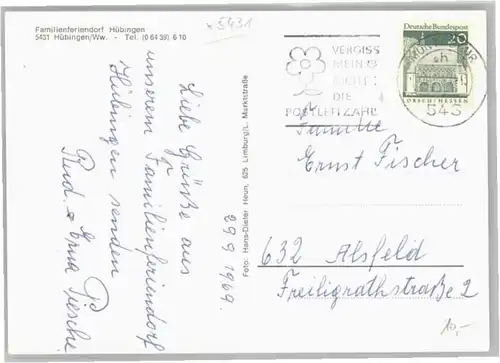 Familienferiendorf Hübingen
5431 Hübingen/Ww. - Tel. (0 64 39) 6 10
5431
Liebe Grüße aus
unserem Familienferiendorf
Hübingen senden
Rud. + Erna Piesche
29 9 1969.
Foto: Hans-Dieter Heun, 625 Limburg/L. Marktstraße
VERGISS
MEIN
NICHT:
DIE
POSTLEITZAHL
Deutsche Bundespost
20
LORSCH/HESSEN
543
Familie
Ernst Fischer
632 Alsfeld
Freiligrathstraße 2
10,-